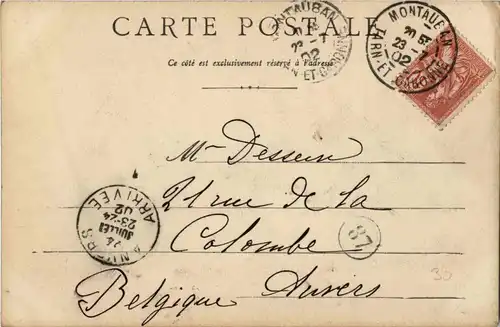 CARTE POSTALE
Ce côté est exclusivement réservé à l'adresse
MONTAUBAN
23 -7
02
TARN-ET-GARONNE
MONTAUBAN
20
23 -7
02
TARN-ET-GARONNE
Mr Dessein
21 rue de la
Colombe
Anvers
Belgique
ANVERS
24
JUILLET
23-24
02
ARRIVÉE
87